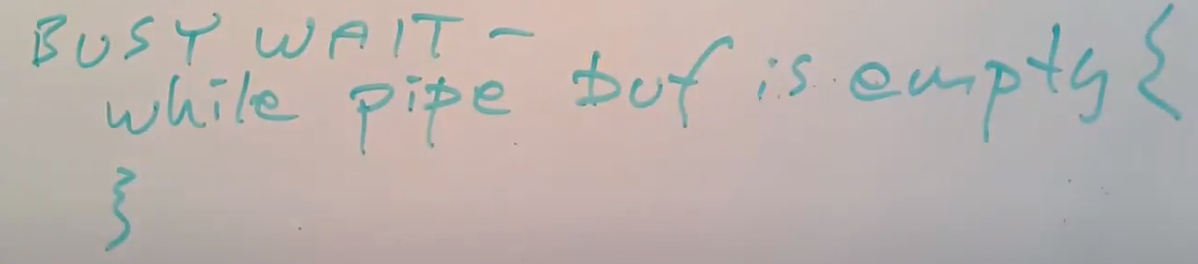 BUSY WAIT -
while pipe buf is empty {
}